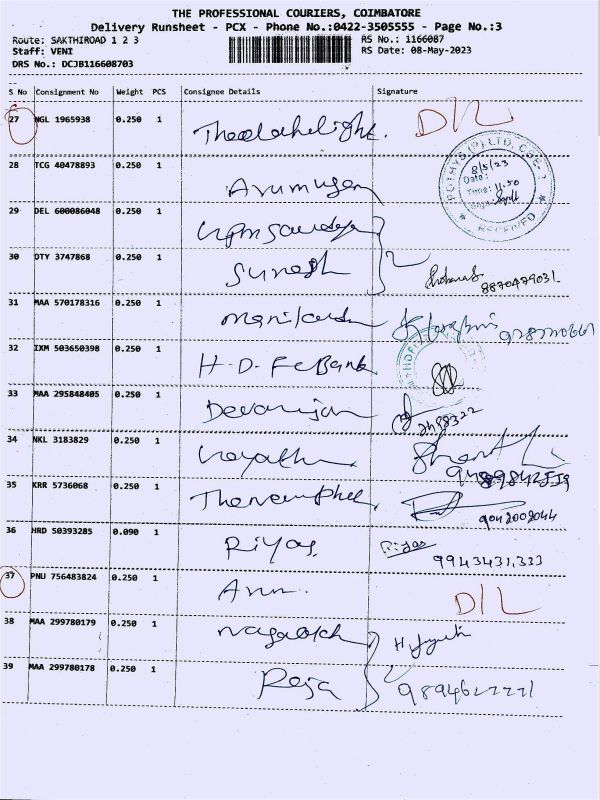 THE PROFESSIONAL COURIERS, COIMBATORE
Delivery Runsheet - PCX - Phone No.:0422-3505555 - Page No.:3
Route: SAKTHIROAD 1 2 3 RS No.: 1166087
Staff: VENI RS Date: 08-May-2023
DRS No.: DCJB116608703
S No Consignment No Weight PCS Consignee Details Signature
27 NGL 1965938 0.250 1 D/L
28 TCG 40478893 0.250 1 Arumugam
POTHYS (P) LTD, CBE
Date: 8/5/23
Time: 11.50
RECEIVED
29 DEL 600086048 0.250 1
30 OTY 3747868 0.250 1 Suresh 8870479031
31 MAA 570178316 0.250 1 Manikandan
32 IXM 503650398 0.250 1 H.D.Fc Bank
33 MAA 295848405 0.250 1 Devarajan
34 NKL 3183829 0.250 1
35 KRR 5736068 0.250 1 9042002044
36 HRD 50393285 0.090 1 Riyas Riyas 9943431333
37 PNU 756483824 0.250 1 Arun D/L
38 MAA 299780179 0.250 1
39 MAA 299780178 0.250 1 Raja